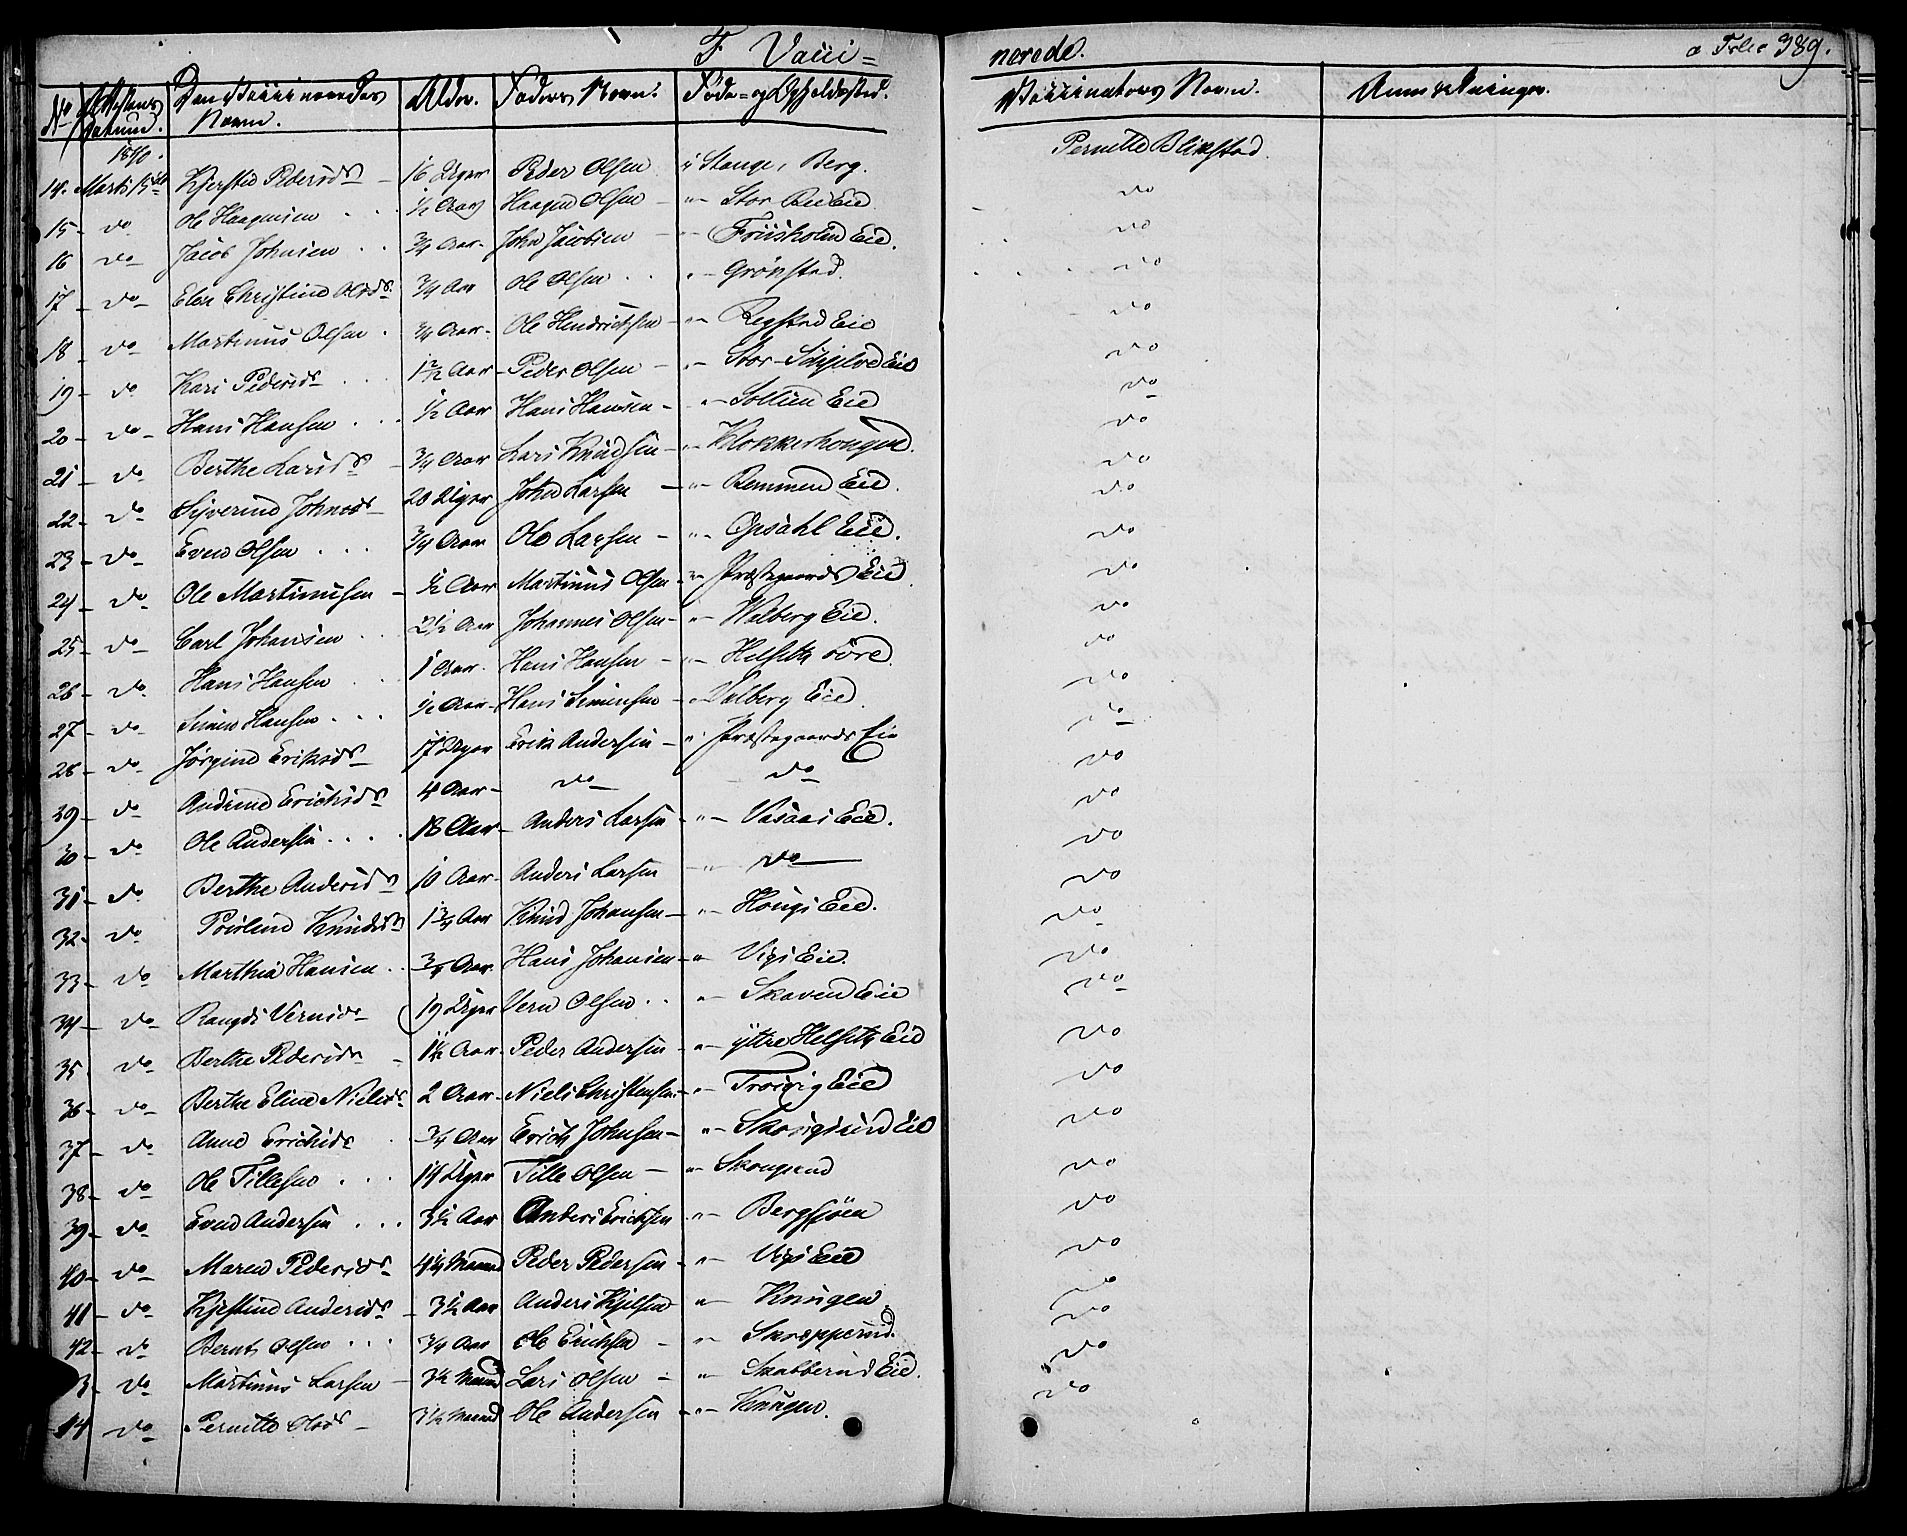 F. Vacci=
nerede.
a Folio 389.
No Attestens Datum. Den Vaccineredes Navn. Alder. Faders Navn. Føde- og Opholdssted. Vaccinateurs Navn. Anmærkninger.
1840.
14. Marts 15de Kjersted Pedersdr - 16 Uger Peder Olsen i Stange, Berg. Pernille Blikstad
15 - do Ole Haagensen ... 1/2 Aar Haagen Olsen - "- Stor Ree Eie do
16 do - Jacob Johnsen .. 3/4 Aar - John Jacobsen - "- Friisholm Eie. do
17 - do - Elen Christine Olsdr 3/4 Aar Ole Olsen .. "- Grønstad. do
18 - do - Martinus Olsen . 3/4 Aar - Ole Hendrichsen - "- Regstad Eie do
19 - do Kari Pedersdr ... 1 1/2 Aar - Peder Olsen - "- Stor-Skjelve Eie do
20 - do - Hans Hansen ... 1/2 Aar Hans Hansen - "- Sollien Eie do
21 - do Berthe Larsdr - 3/4 Aar Lars Knudsen - "- Klokkerhougen. do
22 - do - Syverine Johnsdr - 20 Uger John Larsen - "- Remmen Eie. do
23 - do - Even Olsen ... 3/4 Aar Ole Larsen - "- Opsahl Eie. do
24 - do - Ole Martinusen - 1/2 Aar Martinus Olsen - "- Præstegaards Eie. do
25 - do - Carl Johansen .. 2 1/2 Aar Johannes Olsen - "- Walberg Eie. do
26 - do - Hans Hansen ... 1 Aar. Hans Hansen - "- Helseth øvre. do
27 - do - Simen Hansen ... 1/2 Aar - Hans Simensen - "- Valberg Eie. do
28 - do - Jørgine Eriksdr - 17 Uger Erik Andersen - "- Præstegaards Eie do
29 - do Andrine Erichsdr 4 Aar - do - do do
30 - do - Ole Andersen .... 18 Aar - Anders Larsen - "- Vasaas Eie. do
31 - do Berthe Andersdr 10 Aar - Anders Larsen - "- do do
32 - do - Knudsdr 1 3/4 Aar Knud Johansen - "- Hougs Eie. do
33 - do - Marthia Hansen .. 3/4 Aar. Hans Johansen - "- Vigs Eie. do
34 - do - Rangdi Vernsdr 19 Uger Vern Olsen .. "- Skaven Eie do
35 do - Berthe Pedersdr - 1 1/2 Aar - Peder Andersen - "- yttre Helseth Eie do
36 - do - Berthe Eline Nielsdr 2 Aar - Niels Christensen - "- Troivig Eie do
37 - do - Anne Erichsdr . 3/4 Aar Erich Johnsen - "- Eie do
38 - do - Ole Tillesen ... 14 Uger Tille Olsen - "- do
39 - do - Even Andersen ... 3 1/2 Aar Anders Erichsen "- Bergsjøen do
40 - do - Maren Pedersdr - 4 1/4 Maaned Peder Pedersen - "- Vigs Eie do
41 - do Kjestine Andersdr - 3 1/2 Aar Anders Kjelsen "- Knugen. do
42 - do Bernt Olsen ... 3/4 Aar Ole Erichsen - "- Skræpperud. do
3 - do - Martinus Larsen - 3 1/2 Maaned Lars Olsen - "- Skabberud Eie. do
44 do - Pernille Olsdr - 3 1/2 Maaned Ole Andersen - "- Knugen. do